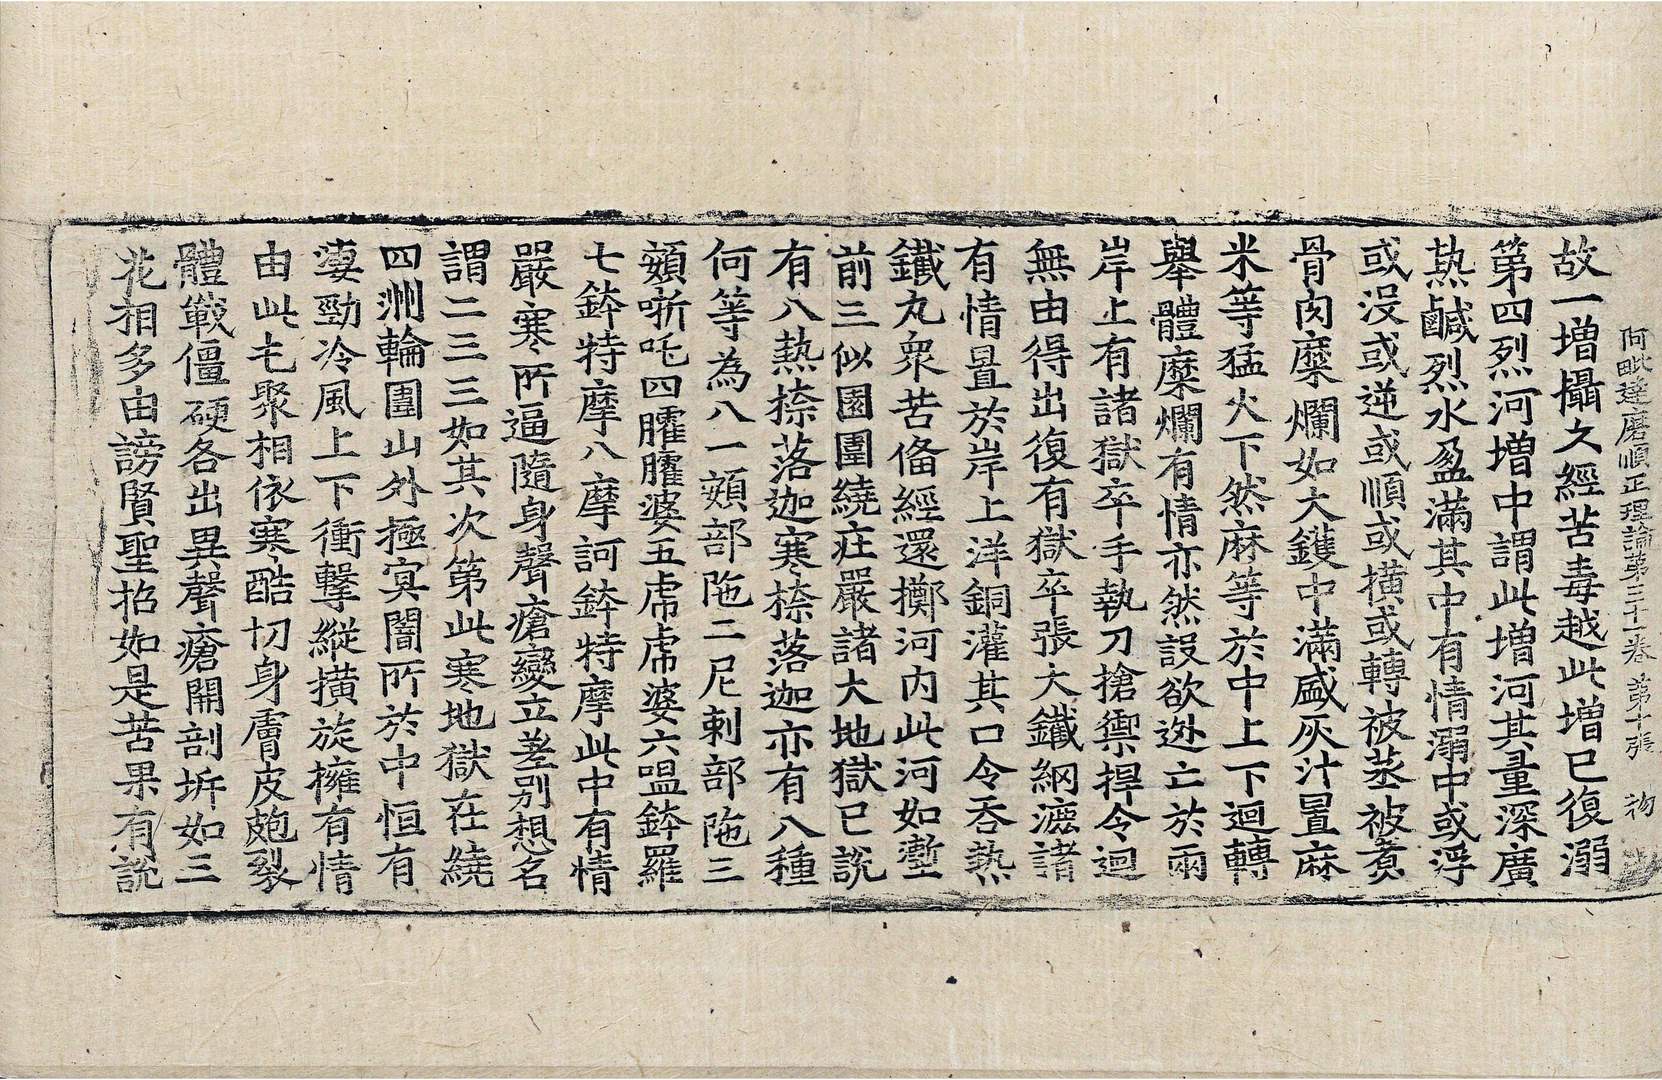 阿毗達磨順正理論第三十一卷 第十張 物
故一増攝久經苦毒越此増已復溺
第四烈河増中謂此増河其量深廣
熱鹹烈水盈滿其中有情溺中或浮
或没或逆或順或撗或轉被蒸被煮
骨肉糜爛如大鑊中滿盛灰汁置麻
米等猛火下然麻等於中上下迴轉
舉體糜爛有情亦然設欲逃亡於兩
岸上有諸獄卒手執刀搶禦捍令迴
無由得出復有獄卒張大鐵網漉諸
有情置於岸上洋銅灌其口令吞熱
鐵丸衆苦俻經還擲河内此河如塹
前三似園圍繞莊嚴諸大地獄已說
有八熱捺落迦寒捺落迦亦有八種
何等為八一頞部陁二尼剌部陁三
頞哳吒四臛臛婆五虎虎婆六嗢鉢羅
七鉢特摩八摩訶鉢特摩此中有情
嚴寒所逼隨身聲瘡變立差別想名
謂二三三如其次第此寒地獄在繞
四洲輪圍山外極冥闇所於中恒有
凄勁冷風上下衝擊縱撗旋擁有情
由此屯聚相依寒酷切身膚皮皰裂
體戰僵硬各出異聲瘡開剖坼如三
花相多由謗賢聖招如是苦果有說